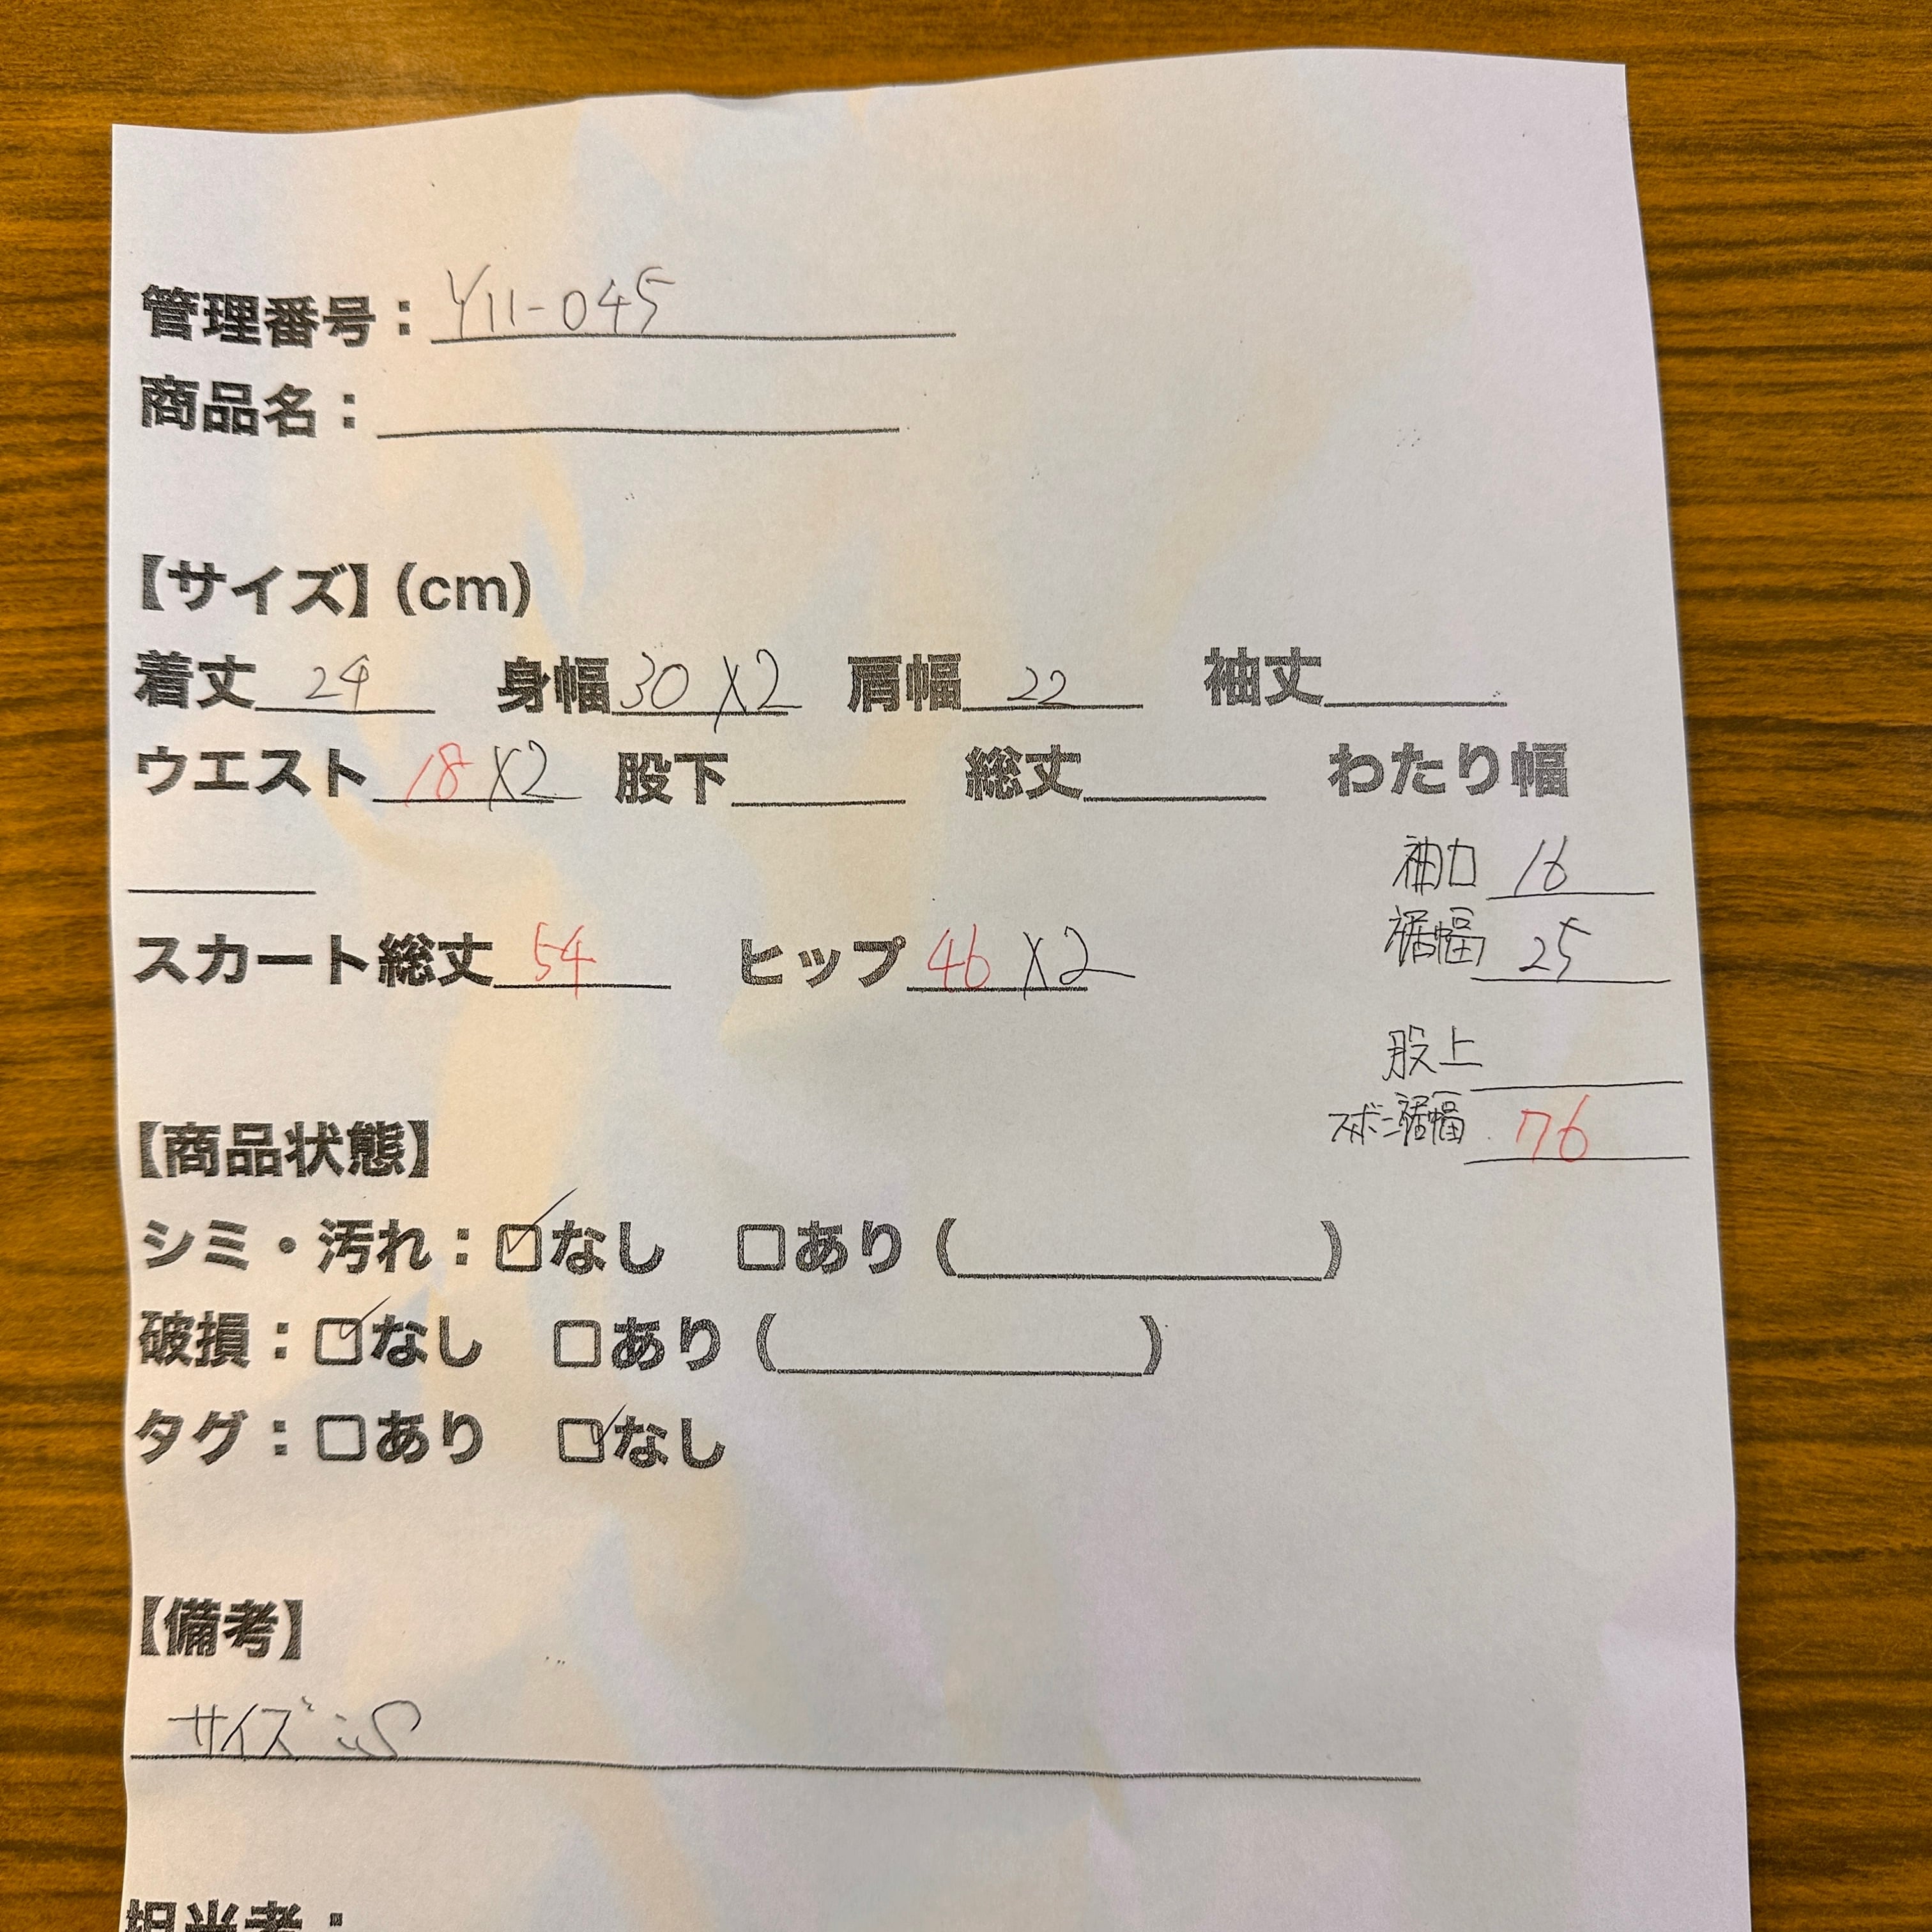 管理番号：Y11-045
商品名：
【サイズ】(cm)
着丈 24 身幅 30 X2 肩幅 22 袖丈
ウエスト 18 X2 股下 総丈 わたり幅
袖口 16
裾幅 25
スカート総丈 54 ヒップ 46 X2
股上
裾幅 76
【商品状態】
シミ・汚れ：☑なし □あり（ ）
破損：☑なし □あり（ ）
タグ：□あり ☑なし
【備考】
サイズ:S
担当者：